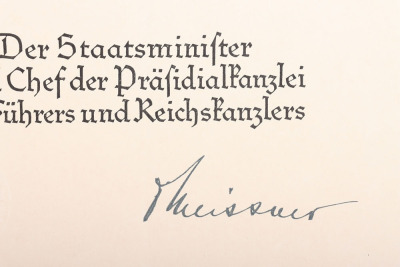 Der Staatsminister
Chef der Präsidialkanzlei
Führers und Reichskanzlers
Meissner